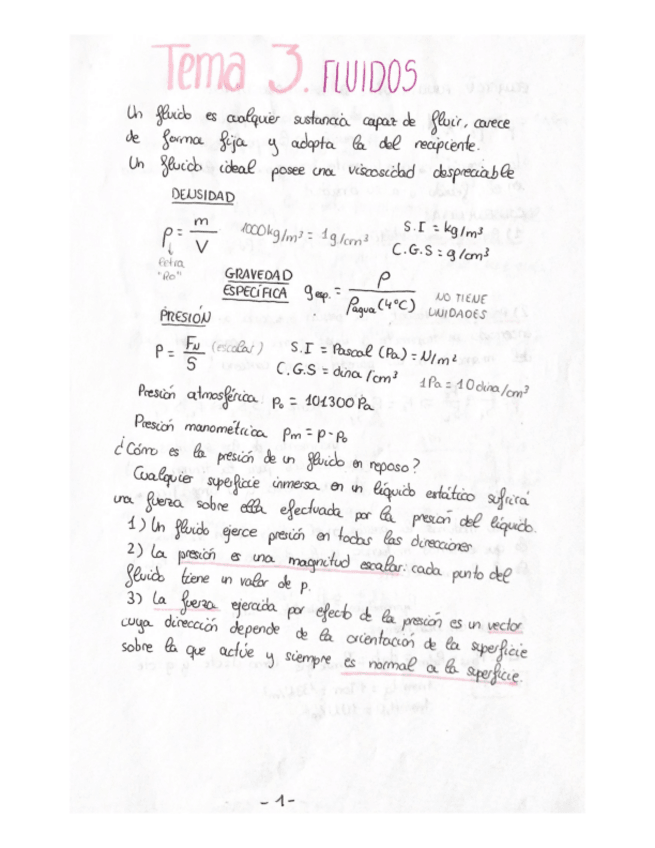 Tema 3. FLUIDOS
Un fluido es cualquier sustancia capaz de fluir, carece
de forma fija y adopta la del recipiente.
Un fluido ideal posee una viscosidad despreciable
DENSIDAD
ρ = m / V   1000 kg/m³ = 1 g/cm³   S.I = kg/m³
C.G.S = g/cm³
↓
letra
"Ro"
GRAVEDAD
ESPECÍFICA g esp. = ρ / ρ agua (4°C)   NO TIENE
UNIDADES
PRESIÓN
P = FN / S (escalar)   S.I = Pascal (Pa) = N/m²
C.G.S = dina/cm³   1Pa = 10 dina/cm³
Presión atmosférica p₀ = 101300 Pa
Presión manométrica pm = p - p₀
¿Cómo es la presión de un fluido en reposo?
Cualquier superficie inmersa en un líquido estático sufrirá
una fuerza sobre ella efectuada por la presión del líquido.
1) Un fluido ejerce presión en todas las direcciones
2) La presión es una magnitud escalar: cada punto del
fluido tiene un valor de p.
3) La fuerza ejercida por efecto de la presión es un vector
cuya dirección depende de la orientación de la superficie
sobre la que actúe y siempre es normal a la superficie.
- 1 -